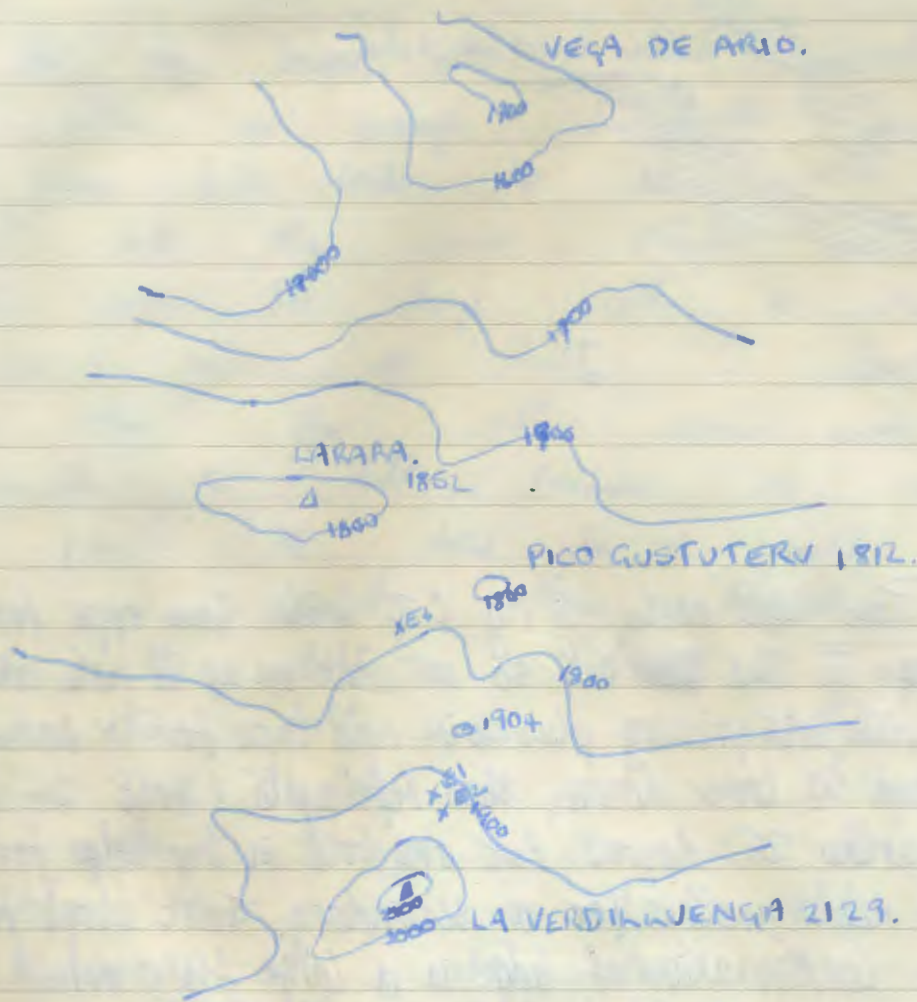 VEGA DE ARIO.
1700
1600
1700
1800
LARARA.
1852
1800
PICO GUSTUTERU 1812.
XE4
1800
1904
E1
1900
2000
LA VERDILLUENGA 2129.